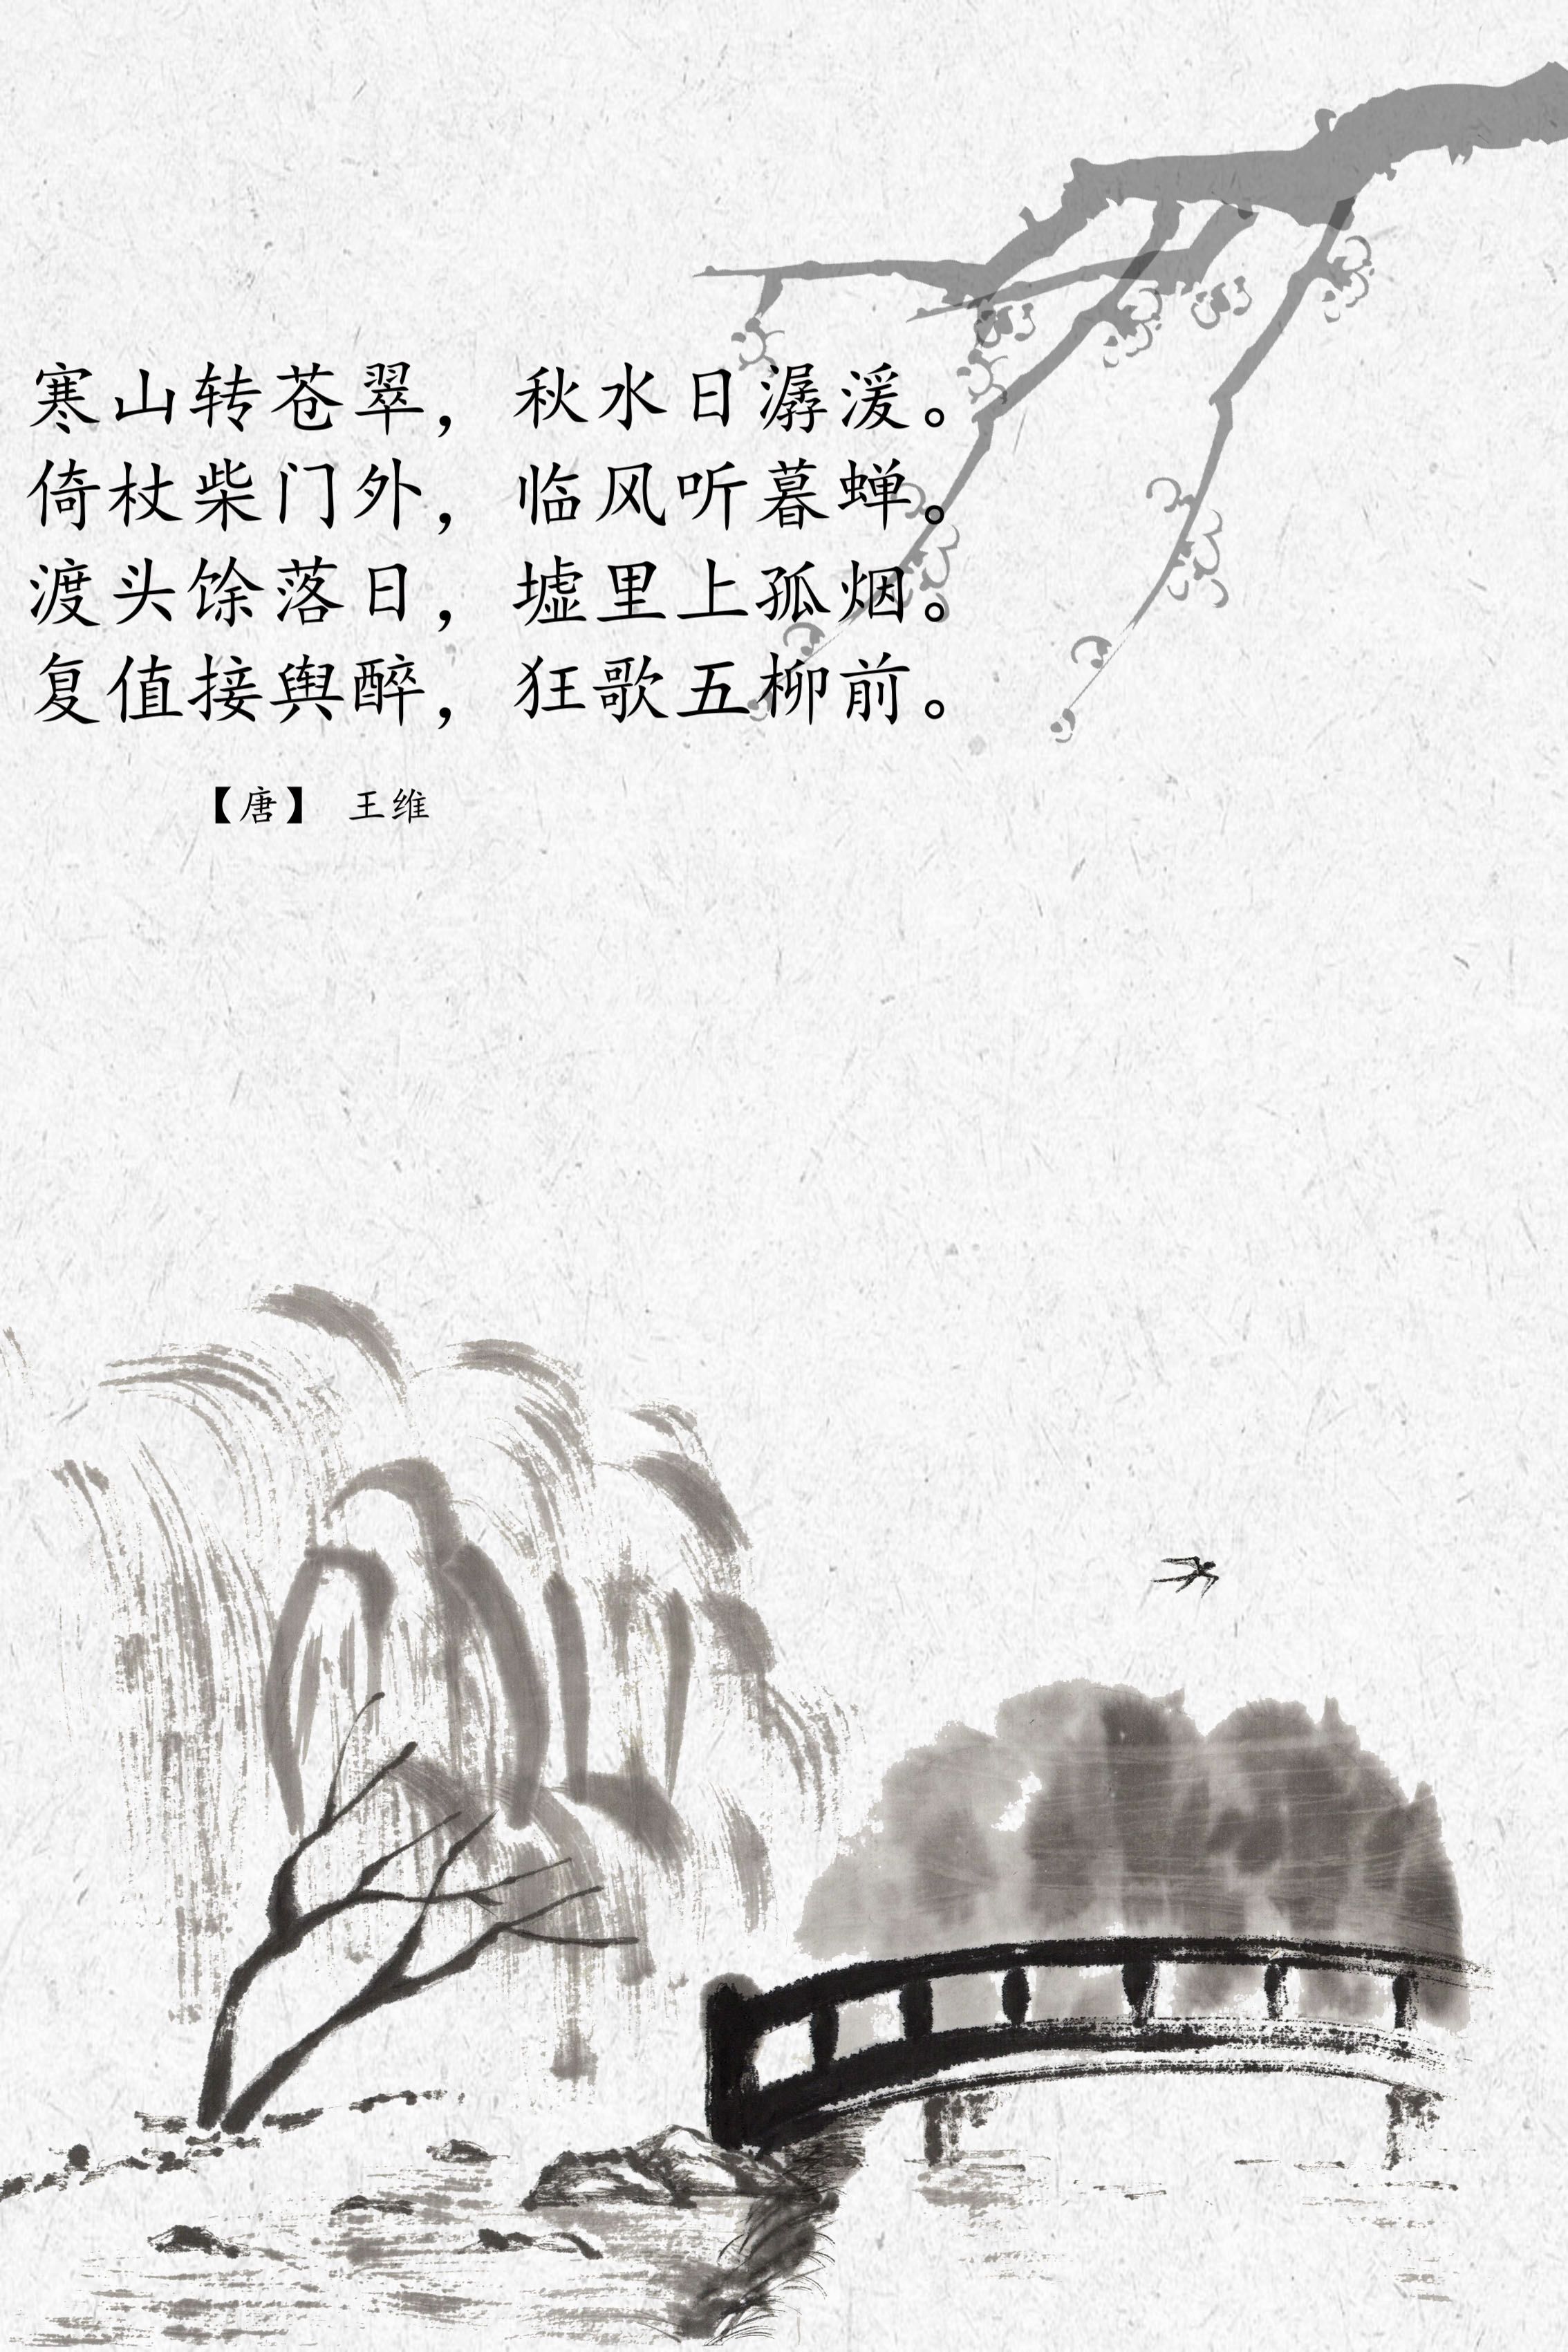 寒山转苍翠，秋水日潺湲。
倚杖柴门外，临风听暮蝉。
渡头馀落日，墟里上孤烟。
复值接舆醉，狂歌五柳前。
【唐】 王维